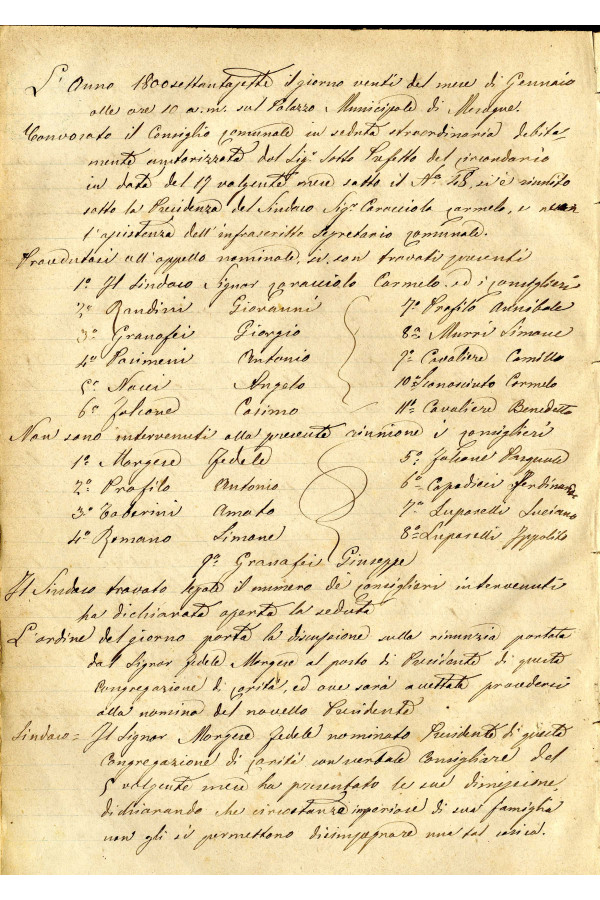 L'Anno 1800settantasette il giorno venti del mese di Gennaio
alle ore 10 a.m. sul Palazzo Municipale di Mesagne.
Convocato il Consiglio Comunale in seduta straordinaria debita-
mente autorizzata dal Sig. Sotto Prefetto del Circondario
in data del 17 volgente mese sotto il N° si è riunito
sotto la Presidenza del Sindaco Sig. Caracciolo Carmelo, e
l'assistenza dell'infrascritto Segretario Comunale.
Procedutosi all'appello nominale, si son trovati presenti
1° Il Sindaco Signor Caracciolo Carmelo ed i Consiglieri
2° Bandini Giovanni 7° Profilo Annibale
3° Granafei Giorgio 8° Murri Simone
4° Pacimeni Antonio 9° Cavaliere Camillo
5° Nacci Angelo 10° Carmelo
6° Falcone Cosimo 11° Cavaliere Benedetto
Non sono intervenuti alla presente riunione i Consiglieri
1° Morgese Fedele 5° Falcone Pasquale
2° Profilo Antonio 6° Capodieci Ferdinando
3° Taberini Amato 7° Luparelli Luciano
4° Romano Simone 8° Luparelli Ippolito
9° Granafei Giuseppe
Il Sindaco trovato legale il numero dei Consiglieri intervenuti
ha dichiarata aperta la seduta
L'ordine del giorno porta la discussione sulla rinunzia portata
dal Signor Fedele Morgese al posto di Presidente di questa
Congregazione di Carità, ed ove sarà accettata procedersi
alla nomina del novello Presidente
Sindaco = Il Signor Morgese Fedele nominato Presidente di questa
Congregazione di Carità con verbale Consigliare del
5 volgente mese ha presentato le sue dimissione,
dichiarando che circostanze imperiose di sua famiglia
non gli si permettono disimpegnare una tal carica.